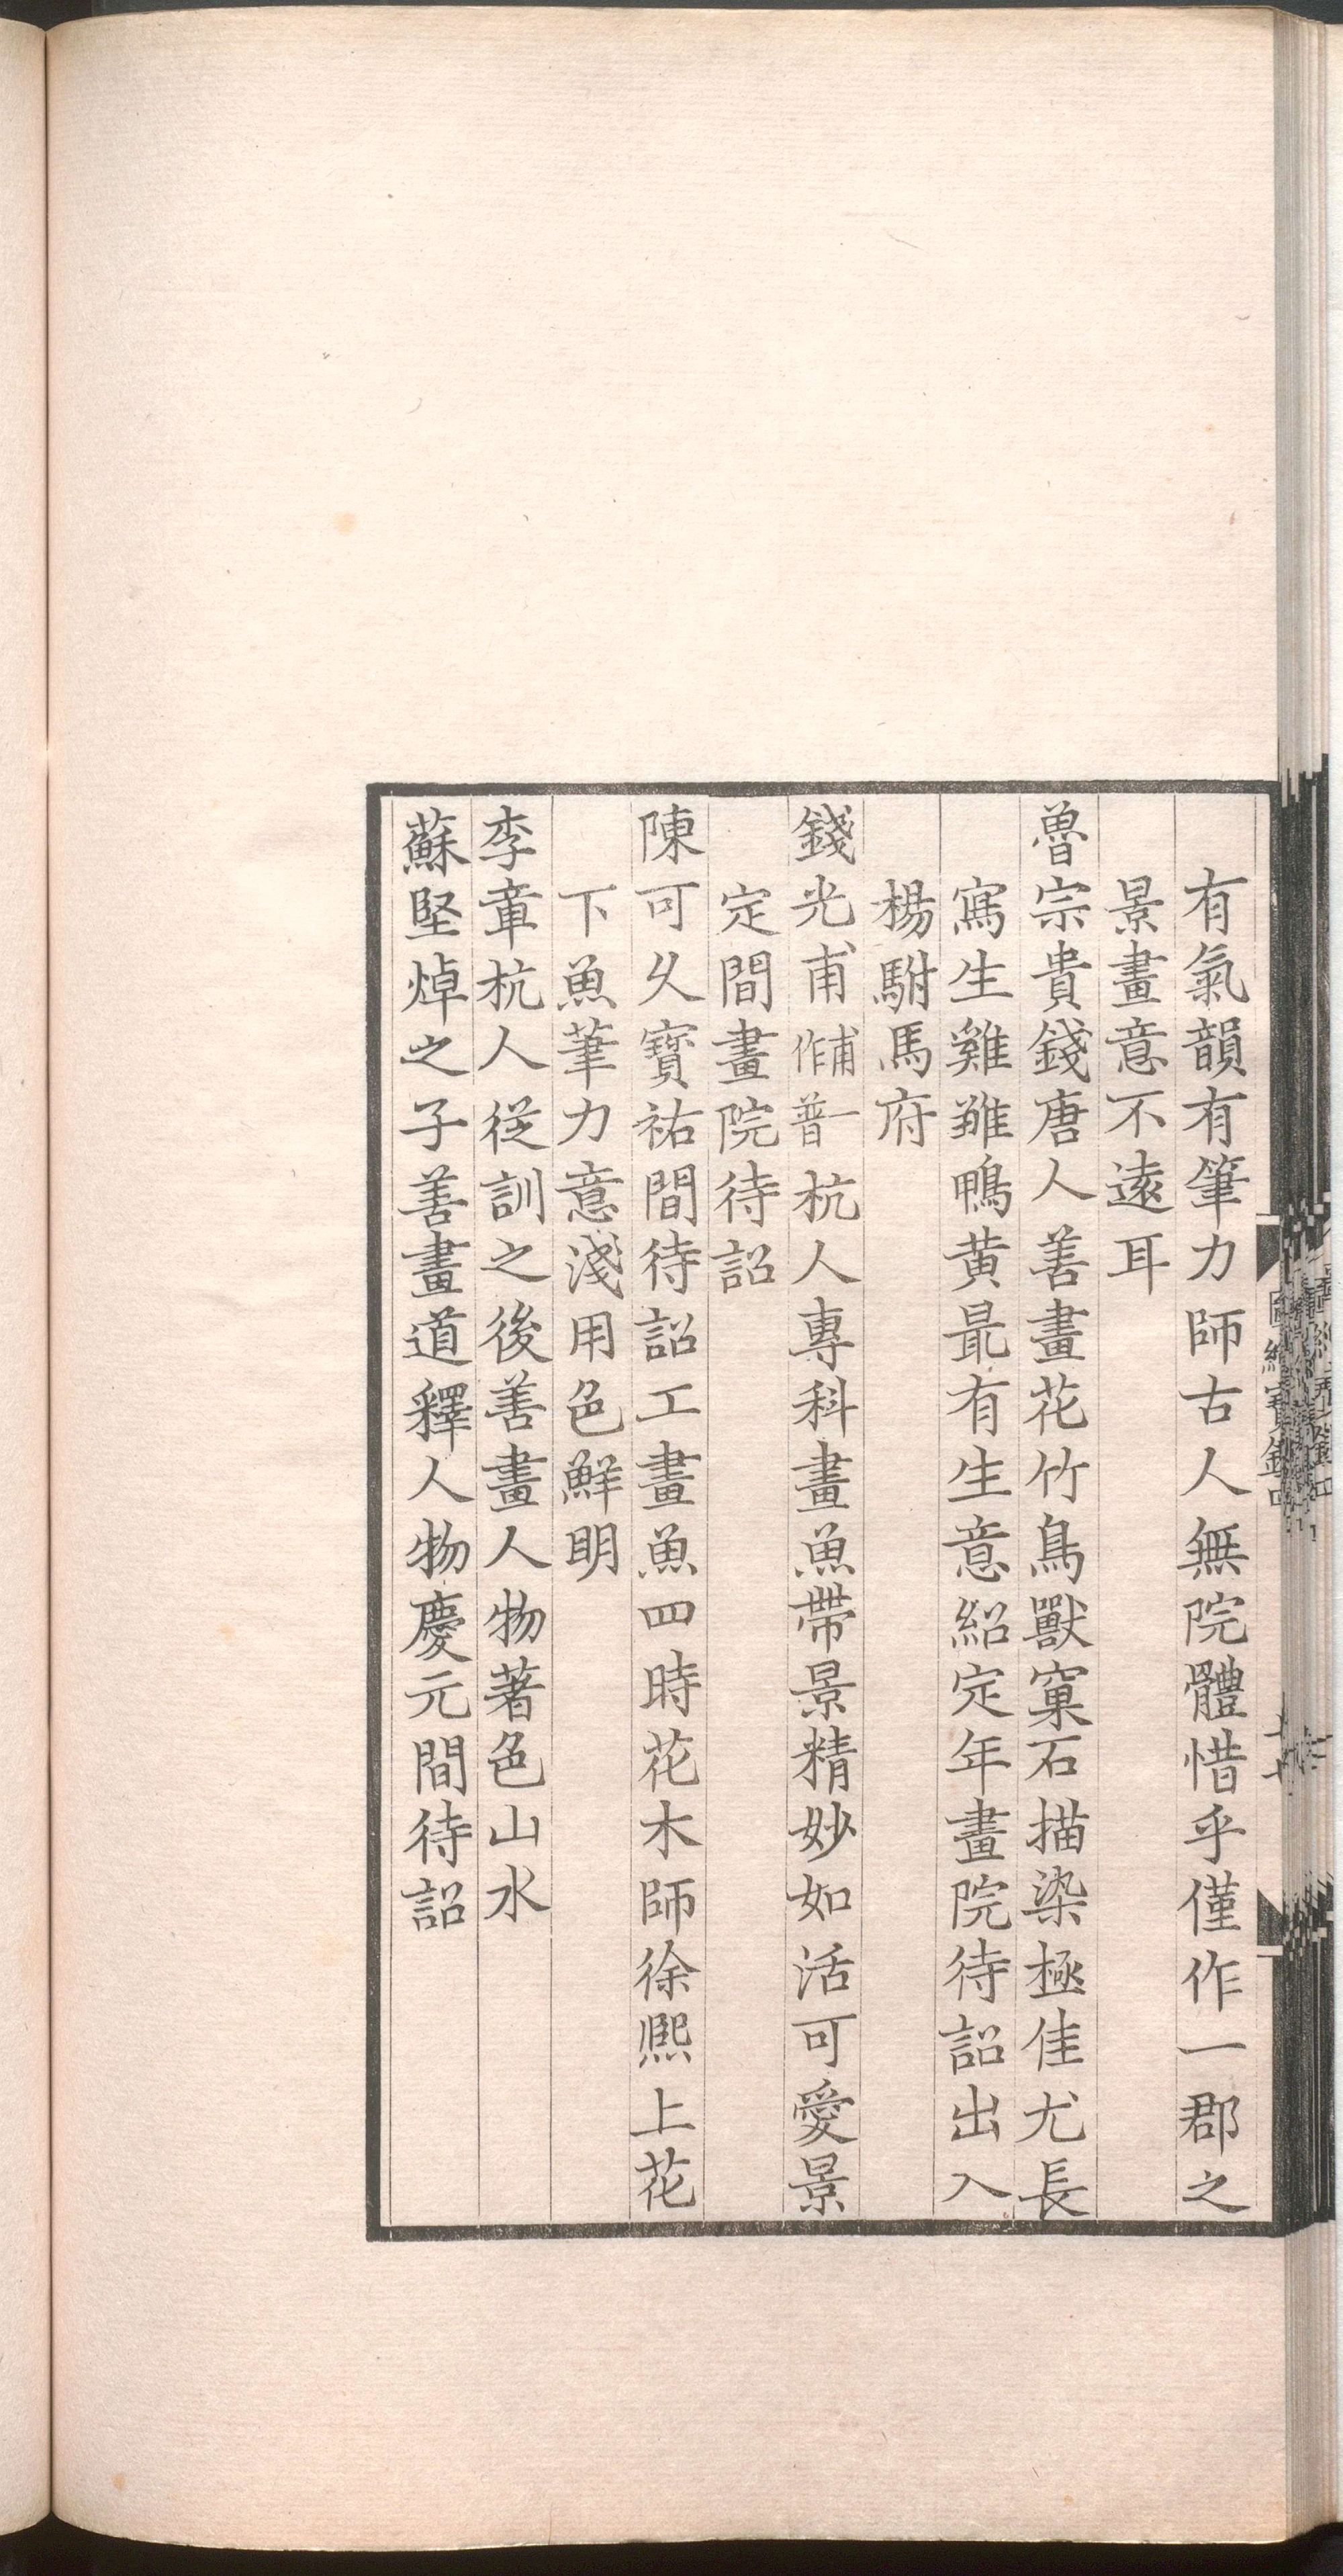 有氣韻有筆力師古人無院體惜乎僅作一郡之
景畫意不遠耳
魯宗貴錢唐人善畫花竹鳥獸窠石描染極佳尤長
寫生雞雛鴨黃最有生意紹定年畫院待詔出入
楊駙馬府
錢光甫一作普甫杭人專科畫魚帶景精妙如活可愛景
定間畫院待詔
陳可久寶祐間待詔工畫魚四時花木師徐熙上花
下魚筆力意淺用色鮮明
李章杭人從訓之後善畫人物著色山水
蘇堅焯之子善畫道釋人物慶元間待詔